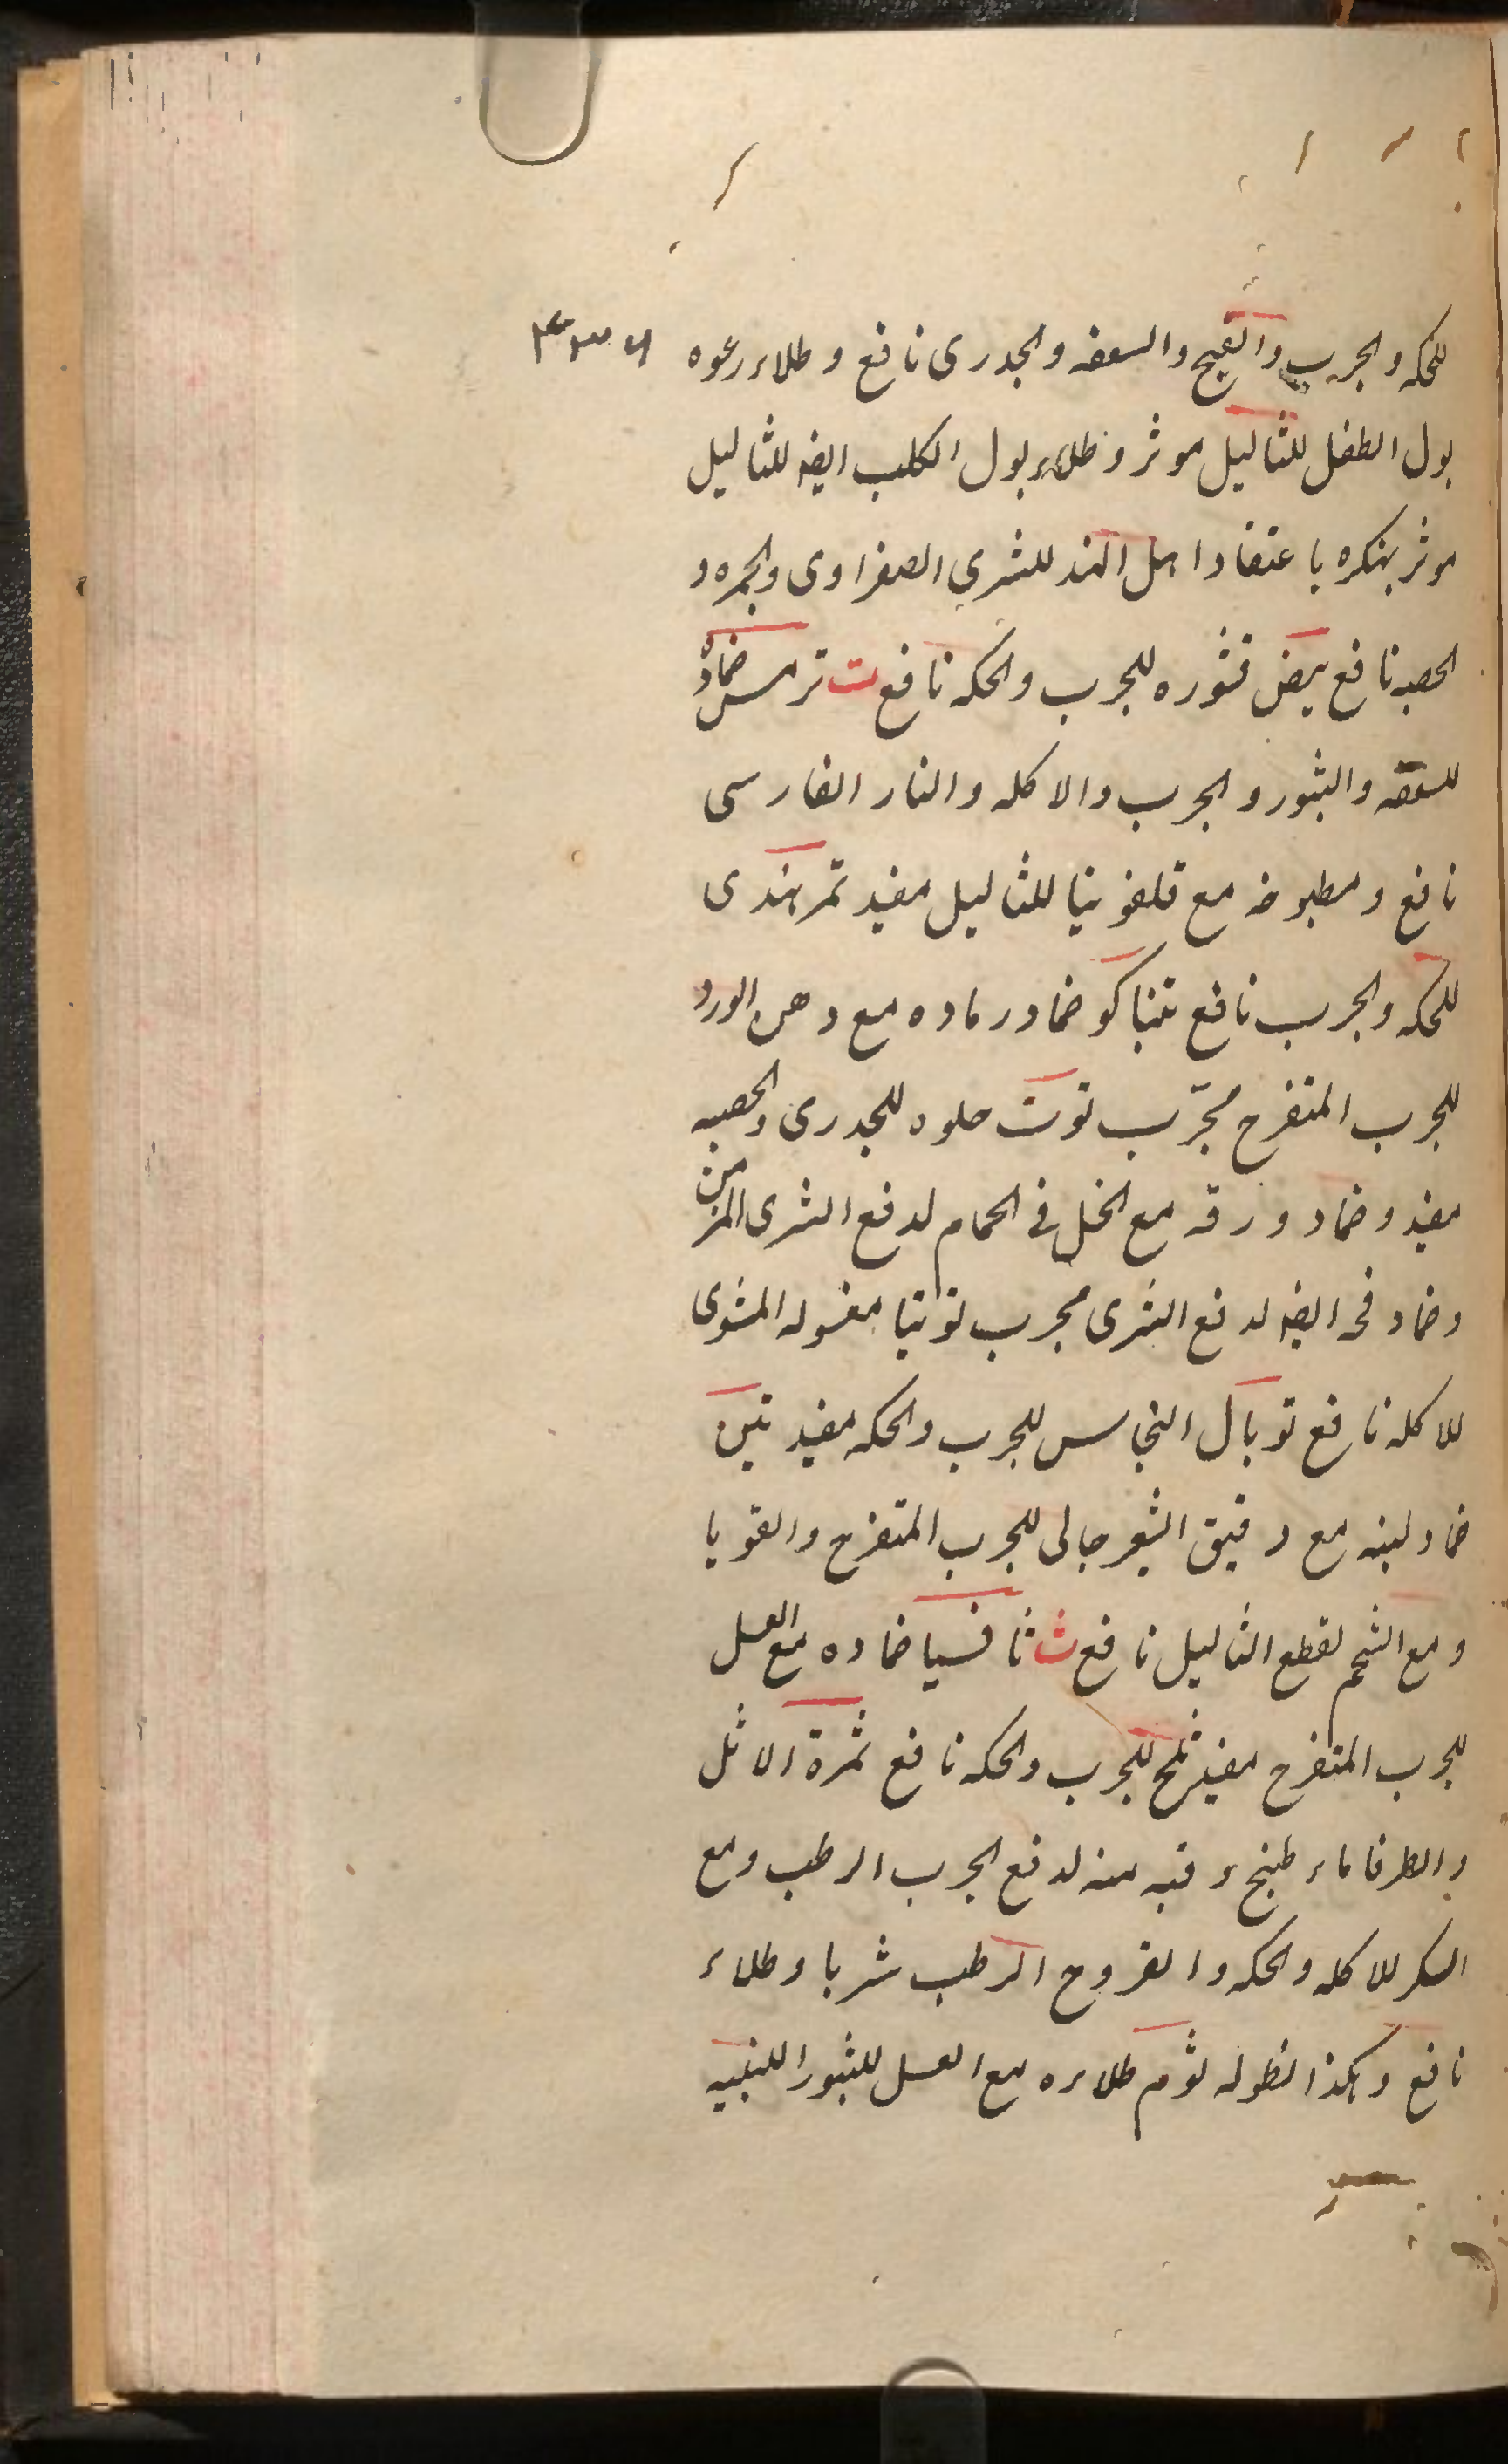 للحكه والجرب والقيح والسعفه والجدرى نافع وطلاء رغوه
بول الطفل للثاليل موثر وطلاء بول الكلب ايضه للثاليل
موثر بهنكره باعتقاد اهل الهند للشرى الصفراوى والحمره و
الحصبه نافع بيض قشوره للجرب والحكه نافع ت ترمس ضماده
للسعفه والبثور والجرب والاكله والنار الفارسى
نافع ومطبوخه مع قلفونيا للثاليل مفيد تمر هندى
للحكه والجرب نافع تنباكو ضماد رماده مع دهن الورد
للجرب المتقرح مجرّب توت حلوه للجدرى والحصبه
مفيد وضماد ورقه مع الخل فى الحمام لدفع الشرى المزمن
وضماد فحه ايضه لدفع الشرى مجرب توتيا مغسوله المشوى
للاكله نافع توبال النحاس للجرب والحكه مفيد تين
ضماد لبنه مع دقيق الشعير جالى للجرب المتقرح والقوبا
ومع الشحم لقطع الثاليل نافع ث ثافسيا ضماده مع العسل
للجرب المتقرح مفيد ثلج للجرب والحكه نافع ثمرة الاثل
والطرفا ماء طبخ وقيه منه لدفع الجرب الرطب ومع
السكر للاكله والحكه والقروح الرطب شربا وطلاء
نافع وهكذا نطوله ثوم طلاءه مع العسل للبثور اللبنيه